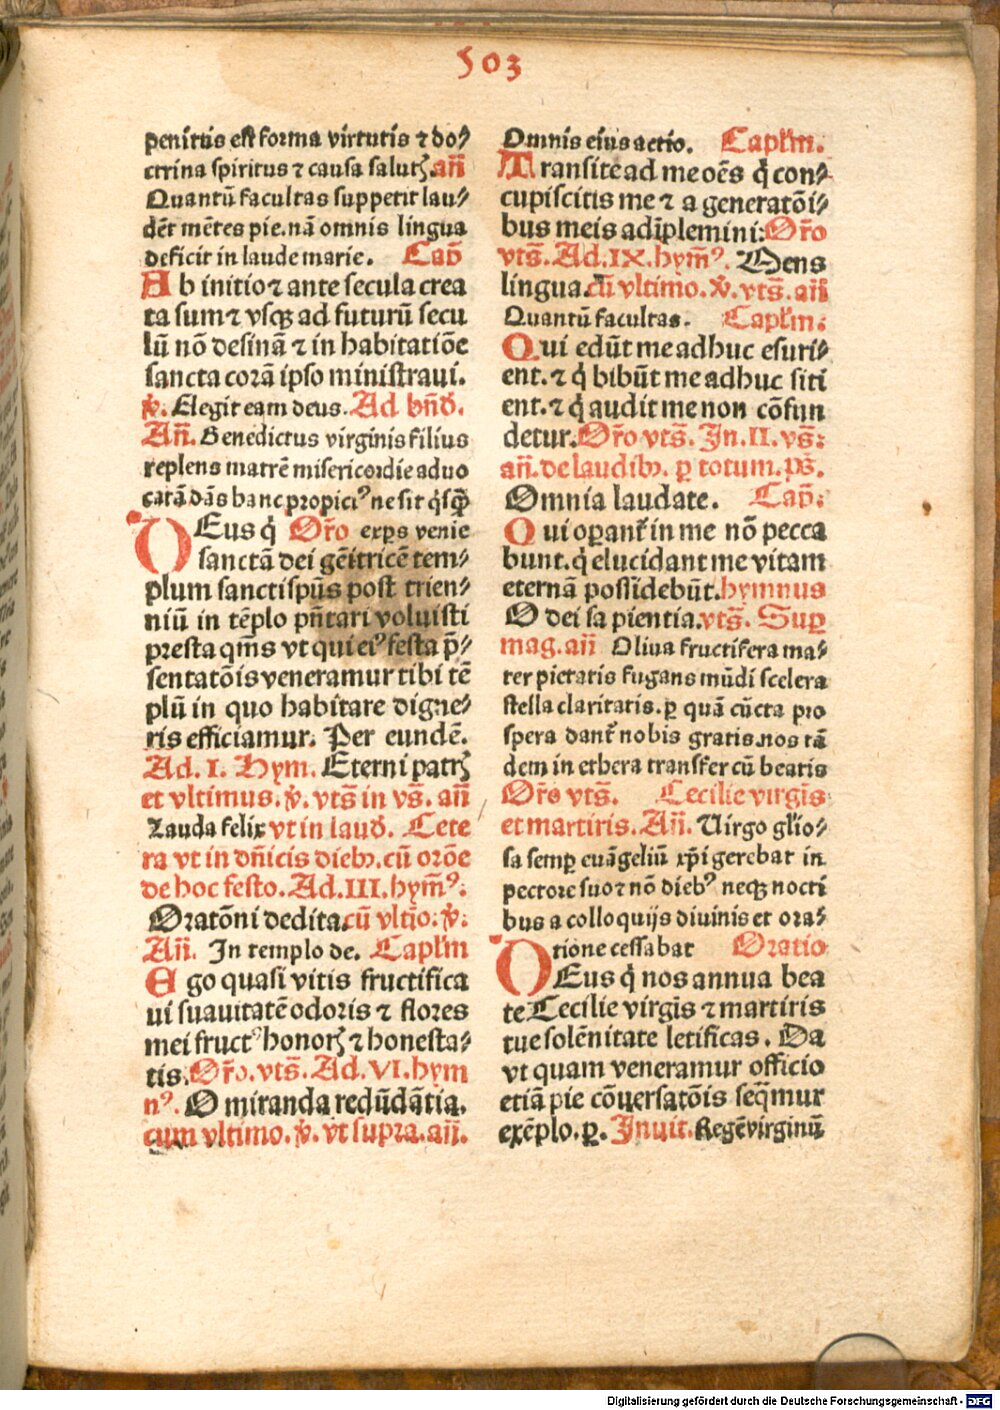 503
penitus est forma virtutis ⁊ do⸗
ctrina spiritus ⁊ causa salutꝭ. añ
Quantū facultas suppetit lau⸗
dēt mētes pie. nā omnis lingua
deficit in laude marie. Cap̄
Ab initio ⁊ ante secula crea
ta sum ⁊ vsqꝫ ad futurū secu
lū nō desinā ⁊ in habitatiōe
sancta corā ipso ministraui.
℣. Elegit eam deus. Ad bn̄d̄.
An̄. Benedictus virginis filius
replens matrē misericordie aduo
catā dās hanc propiciꝰ ne sit q̇sq̄ꝫ
DEus q̇ Or̄o exp̄s venie
sanctā dei gēitricē tem⸗
plum sancti sp̄us post trien⸗
niū in tēplo pn̄tari voluisti
presta qm̄s vt qui eiꝰ festa p̄⸗
sentatōis veneramur tibi tē
plū in quo habitare digne⸗
ris efficiamur. Per eundē.
Ad. I. Hym. Eterni patrꝭ
et vltimus. ℣. vts̄ in vs̄. an̄
Lauda felix vt in laud̄. Cete
ra vt in dn̄icis dieb⁊. cū orōe
de hoc festo. Ad. III. hym̄ꝰ.
Oratōni dedita. cū vltīo. ℣.
An̄. In templo de. Capl'm
Ego quasi vitis fructifica
ui suauitatē odoris ⁊ flores
mei fructꝰ honorꝭ ⁊ honesta⸗
tis. Or̄o. vts̄. Ad. VI. hym
nꝰ. O miranda redūdātia.
cum vltimo. ℣. vt supra. an̄.
Omnis eius actio. Capl'm.
Transite ad me oēs q̇ con⸗
cupiscitis me ⁊ a generatōi⸗
bus meis adīplemini: Or̄o
vts̄. Ad. IX. hym̄ꝰ. Mens
lingua. cū vltimo. ℣. vts̄. an̄
Quantū facultas. Capl'm:
Qui edūt me adhuc esuri⸗
ent. ⁊ q̇ bibūt me adhuc siti
ent. ⁊ q̇ audit me non cōfun
detur. Or̄o vts̄. In. II. vs̄:
an̄. de laudib⁊. ꝑ totum. ps̄.
Omnia laudate. Cap̄:
Qui oꝑant̄ in me nō pecca
bunt. q̇ elucidant me vitam
eternā possidebūt. hymnus
O dei sapientia. vts̄. Suꝑ
mag. an̄ Oliua fructifera ma⸗
ter pietatis fugans mūdi scelera
stella claritatis. ꝑ quā cūcta pro
spera dant̄ nobis gratis. nos tā
dem in ethera transfer cū beatis
Or̄o vts̄. Cecilie virgīs
et martiris. An̄. Uirgo gl'io⸗
sa semꝑ euāgeliū xp̄i gerebat in
pectore suo ⁊ nō diebꝰ neqꝫ nocti
bus a colloquijs diuinis et ora⸗
tione cessabat Oratio
DEus q̇ nos annua bea
te Cecilie virgīs ⁊ martiris
tue solēnitate letificas. Da
vt quam veneramur officio
etiā pie cōuersatōis seq̄mur
exēplo. ꝑ. Inuit. Regē virginū
Digitalisierung gefördert durch die Deutsche Forschungsgemeinschaft - DFG